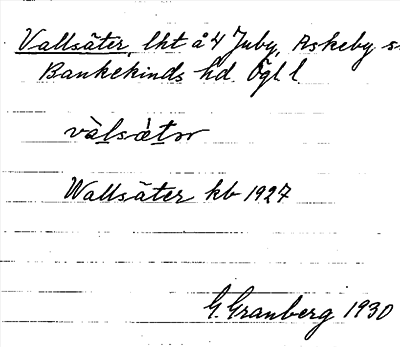 Vallsäter, lht å 4 Juby, Askeby s
Bankekinds hd. Ögl l.
vàlsǻtər
Wallsäter kb 1927
G. Granberg 1930